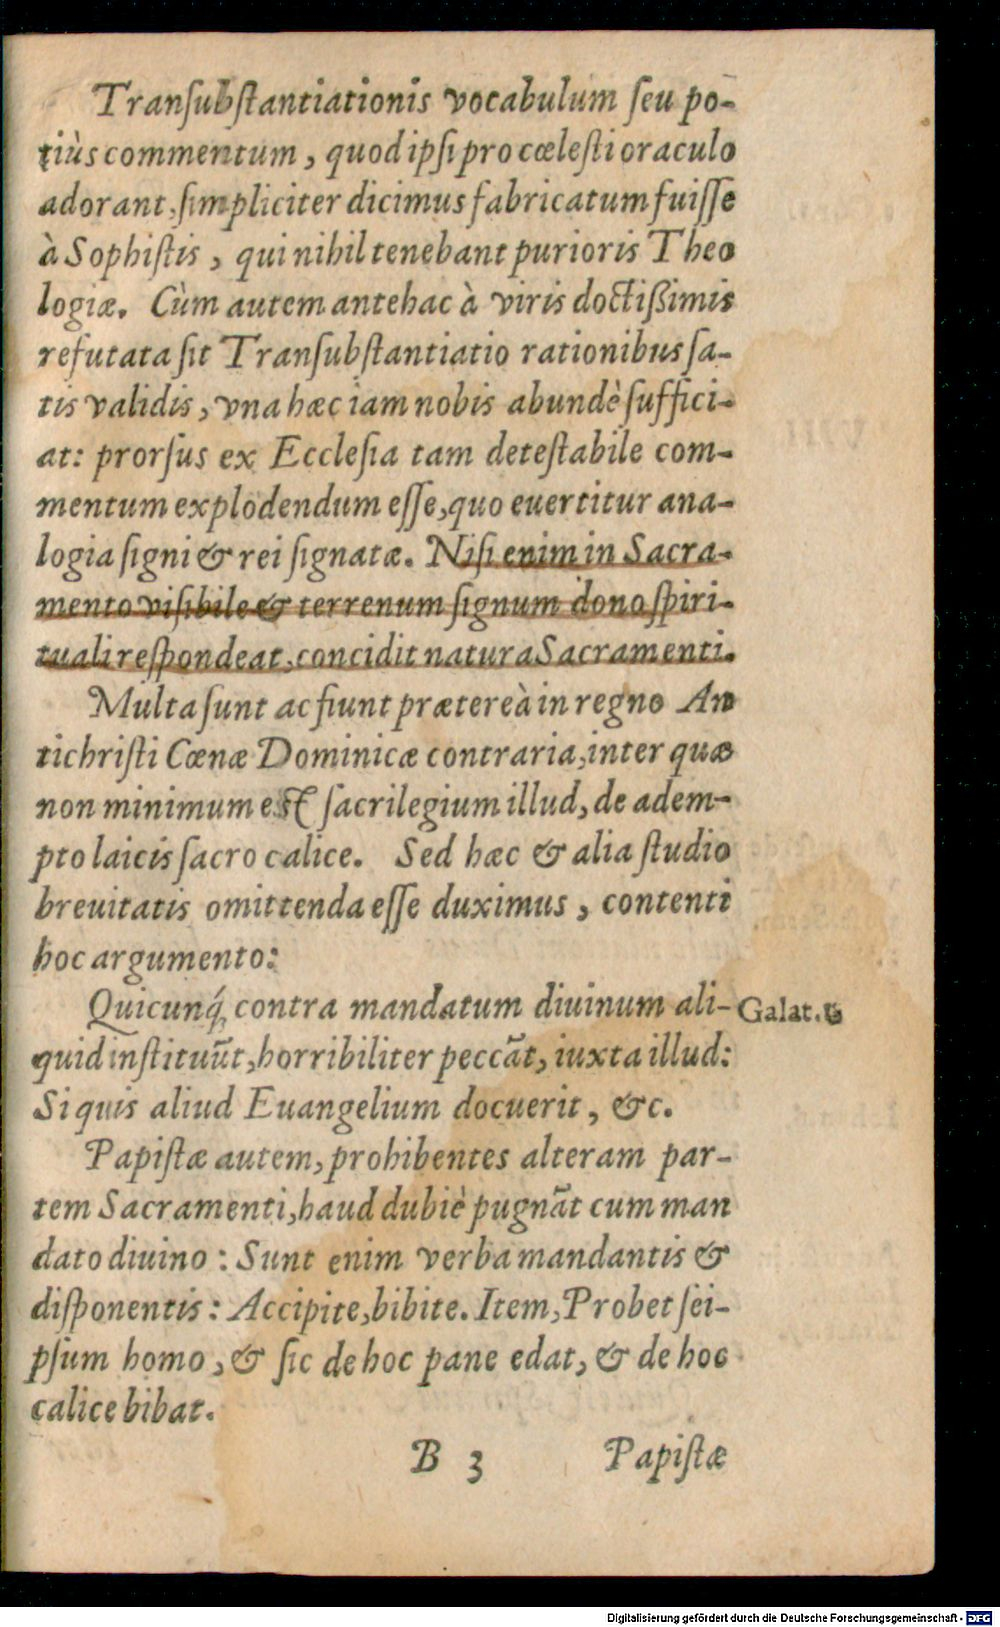 Tranſubſtantiationis vocabulum ſeu po-
tiùs commentum, quod ipſi pro cœleſti oraculo
adorant, ſimpliciter dicimus fabricatum fuiſſe
à Sophiſtis, qui nihil tenebant purioris Theo
logiæ. Cùm autem antehac à viris doctißimis
refutata ſit Tranſubſtantiatio rationibus ſa-
tis validis, vna hæc iam nobis abundè ſuffici-
at: prorſus ex Eccleſia tam deteſtabile com-
mentum explodendum eſſe, quo euertitur ana-
logia ſigni & rei ſignatæ. Niſi enim in Sacra-
mento viſibile & terrenum ſignum dono ſpiri-
tuali reſpondeat, concidit natura Sacramenti.
Multa ſunt ac fiunt prætereà in regno An
tichriſti Cœnæ Dominicæ contraria, inter quæ
non minimum eſt ſacrilegium illud, de adem-
pto laicis ſacro calice. Sed hæc & alia ſtudio
breuitatis omittenda eſſe duximus, contenti
hoc argumento:
Quicunq́; contra mandatum diuinum ali-
quid inſtituũt, horribiliter peccãt, iuxta illud:
Si quis aliud Euangelium docuerit, &c.
Galat.
Papiſtæ autem, prohibentes alteram par-
tem Sacramenti, haud dubiè pugnãt cum man
dato diuino: Sunt enim verba mandantis &
diſponentis: Accipite, bibite. Item, Probet ſei-
pſum homo, & ſic de hoc pane edat, & de hoc
calice bibat.
B 3 Papiſtæ
Digitalisierung gefördert durch die Deutsche Forschungsgemeinschaft - DFG